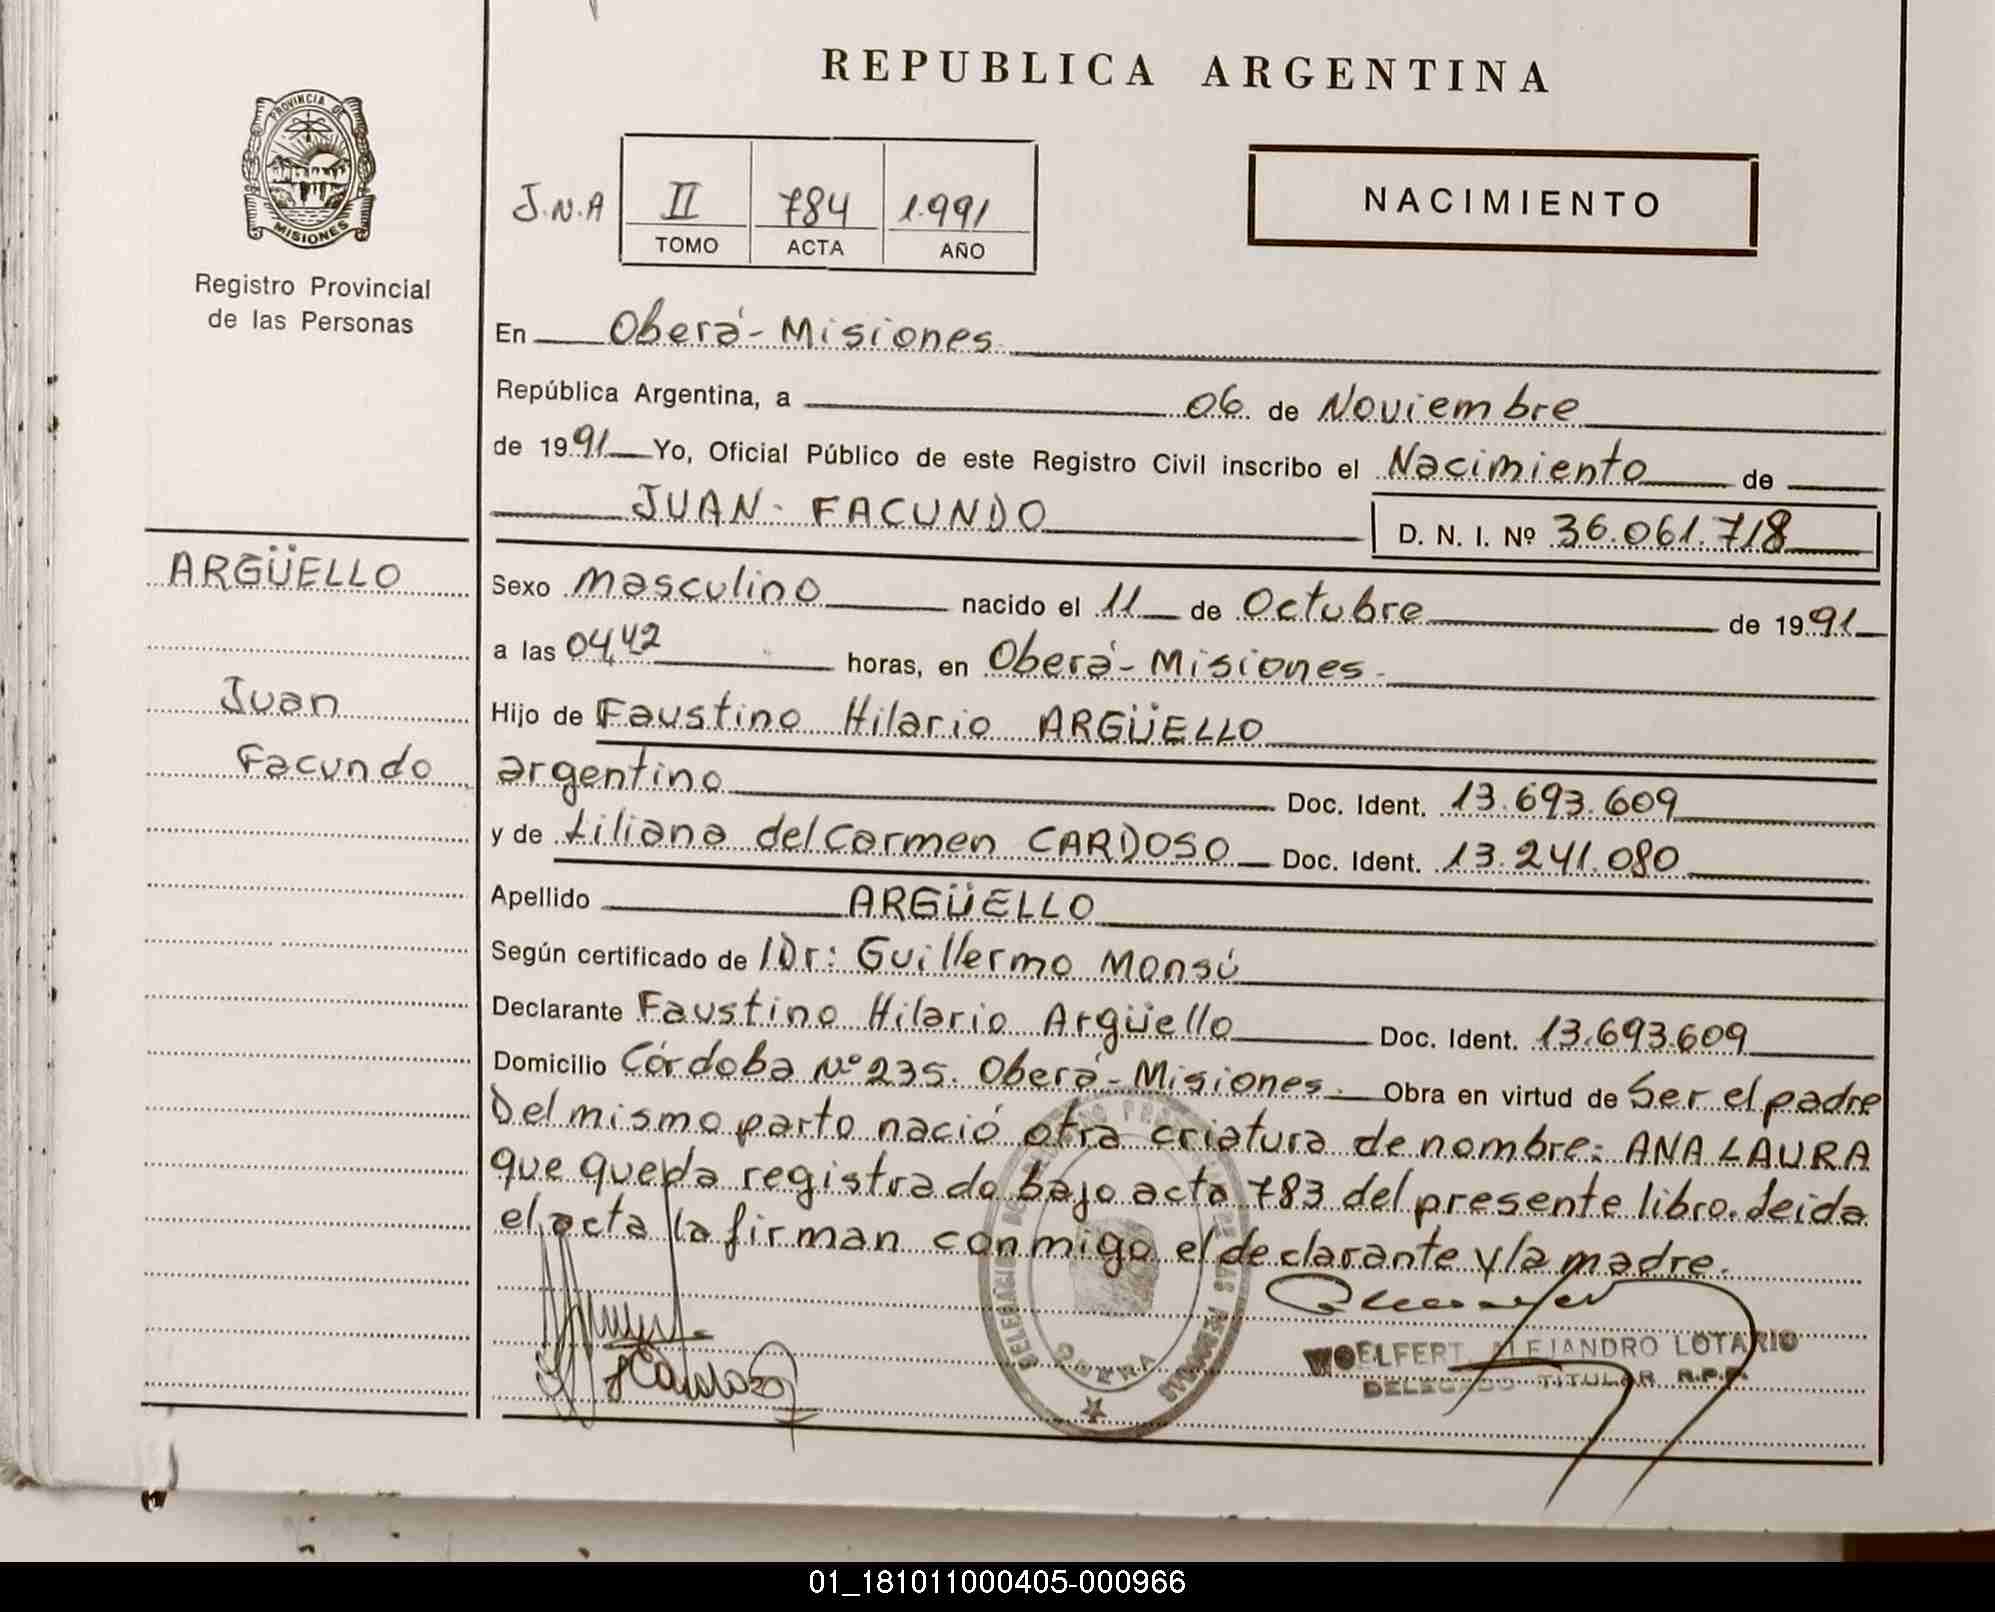 REPUBLICA ARGENTINA
PROVINCIA DE
MISIONES
Registro Provincial
de las Personas
J.N.A
II 784 1.991
TOMO ACTA AÑO
NACIMIENTO
En Oberá-Misiones.
República Argentina, a 06 de Noviembre
de 1991 Yo, Oficial Público de este Registro Civil inscribo el Nacimiento de
JUAN- FACUNDO
D. N. I. Nº 36.061.718
ARGÜELLO
Juan
Facundo
Sexo Masculino nacido el 11 de Octubre de 1991
a las 04,42 horas, en Oberá-Misiones.
Hijo de Faustino Hilario ARGÜELLO
argentino Doc. Ident. 13.693.609
y de Liliana del Carmen CARDOSO Doc. Ident. 13.241.080
Apellido ARGÜELLO
Según certificado de Dr: Guillermo Monsú
Declarante Faustino Hilario Argüello Doc. Ident. 13.693.609
Domicilio Córdoba Nº 235. Oberá-Misiones. Obra en virtud de Ser el padre
Del mismo parto nació otra criatura de nombre: ANA LAURA
que queda registrado bajo acta 783 del presente libro. Leida
el acta la firman conmigo el declarante y la madre.
WOELFERT ALEJANDRO LOTARIO
DELEGADO TITULAR R.P.P.
OBERA
01_181011000405-000966